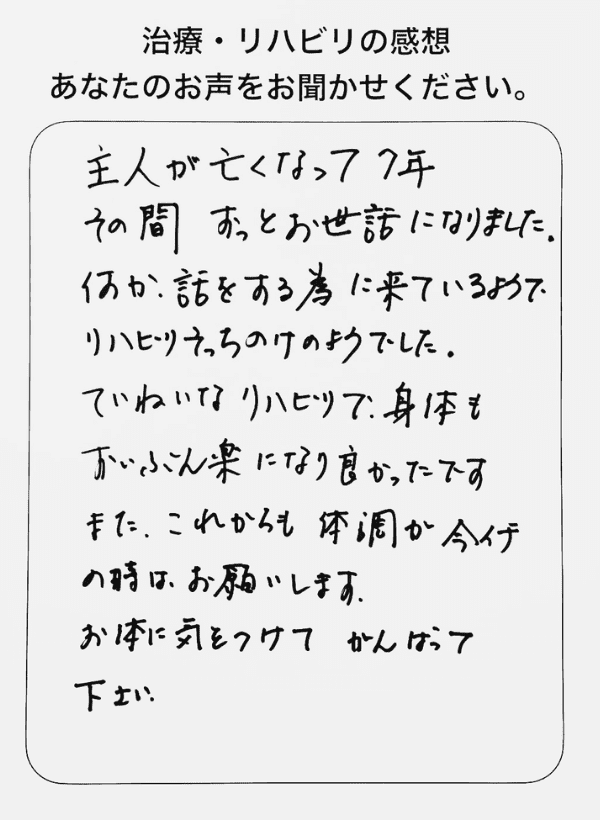 治療・リハビリの感想
あなたのお声をお聞かせください。
主人が亡くなって7年
その間 ずっとお世話になりました。
何か、話をする為に来ているようで
リハビリそっちのけのようでした。
ていねいなリハビリで、身体も
ずいぶん楽になり良かったです
また、これからも体調が今イチ
の時は、お願いします。
お体に気をつけて がんばって
下さい。